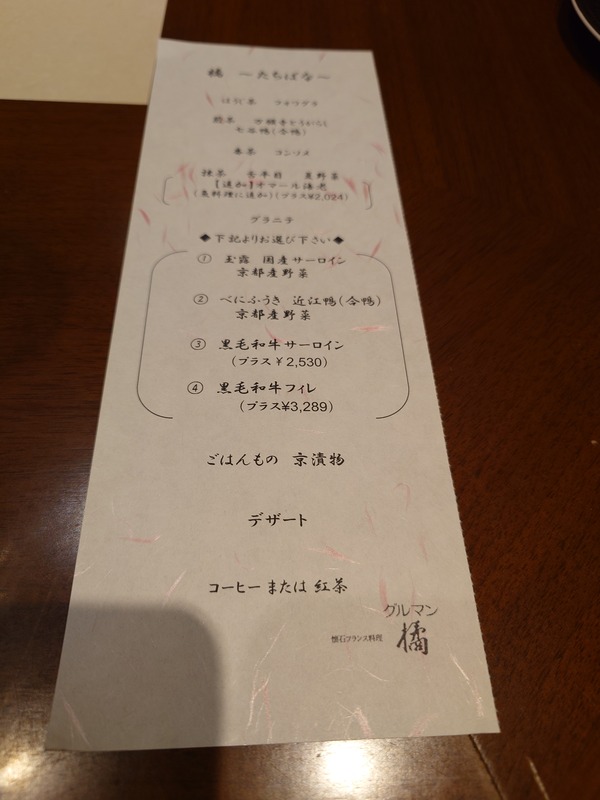 橘 ～たちばな～
ほうじ茶 フォアグラ
煎茶 万願寺とうがらし
七谷鴨(合鴨)
番茶 コンソメ
抹茶 舌平目 夏野菜
【追加】オマール海老
(魚料理に追加)(プラス¥2,024)
グラニテ
◆下記よりお選び下さい◆
① 玉露 国産サーロイン
京都産野菜
② べにふうき 近江鴨(合鴨)
京都産野菜
③ 黒毛和牛サーロイン
(プラス¥2,530)
④ 黒毛和牛フィレ
(プラス¥3,289)
ごはんもの 京漬物
デザート
コーヒー または 紅茶
グルマン
懐石フランス料理 橘